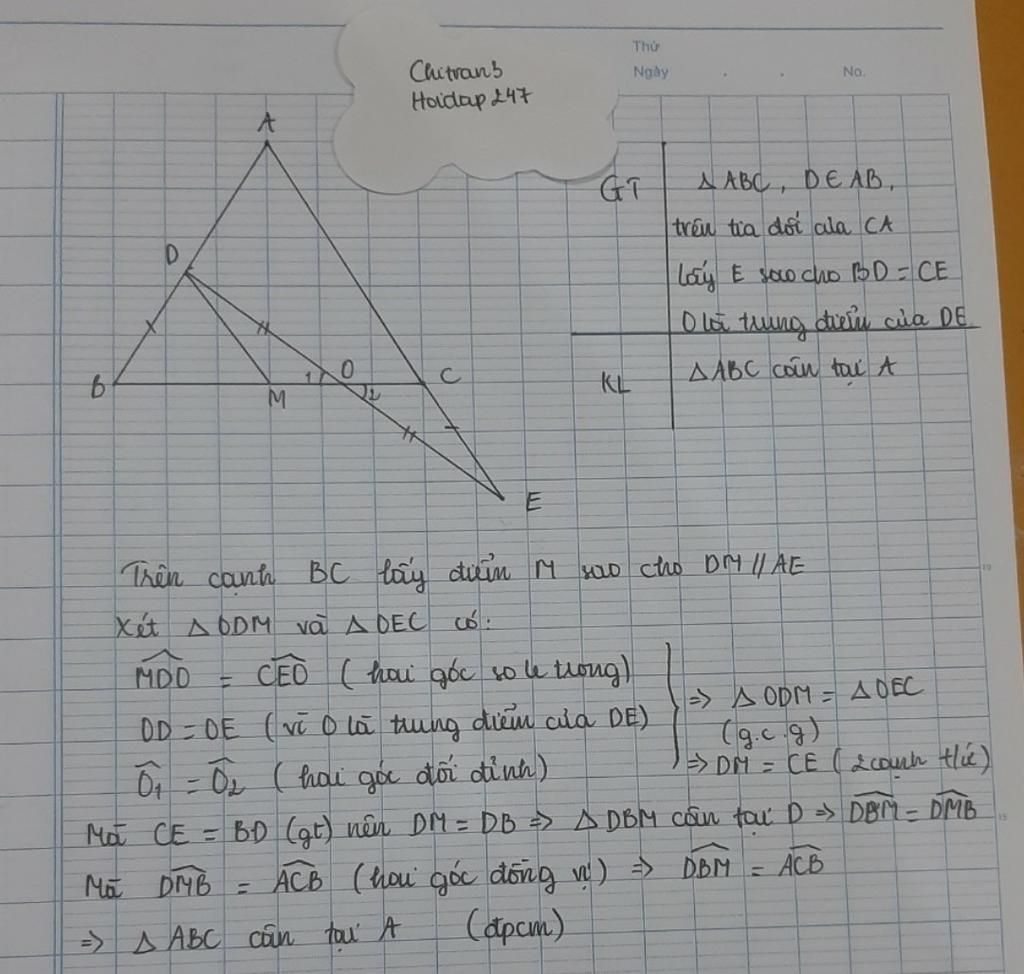 Chitran3
Hoidap247
Thứ
Ngày . . No.
A
D
B
M
1
O
2
C
E
GT
Δ ABC, D∈AB,
trên tia đối của CA
lấy E sao cho BD = CE
O là trung điểm của DE
KL
Δ ABC cân tại A
Trên cạnh BC lấy điểm M sao cho DM // AE
Xét Δ ODM và Δ OEC có:
\widehat{MDO} = \widehat{CEO} (hai góc so le trong)
OD = OE (vì O là trung điểm của DE)
\widehat{O}₁ = \widehat{O}₂ (hai góc đối đỉnh)
⇒ Δ ODM = Δ OEC
(g.c.g)
⇒ DM = CE (2 cạnh t/ứ)
Mà CE = BD (gt) nên DM = DB ⇒ Δ DBM cân tại D ⇒ \widehat{DBM} = \widehat{DMB}
Mà \widehat{DMB} = \widehat{ACB} (hai góc đồng vị) ⇒ \widehat{DBM} = \widehat{ACB}
⇒ Δ ABC cân tại A (đpcm)